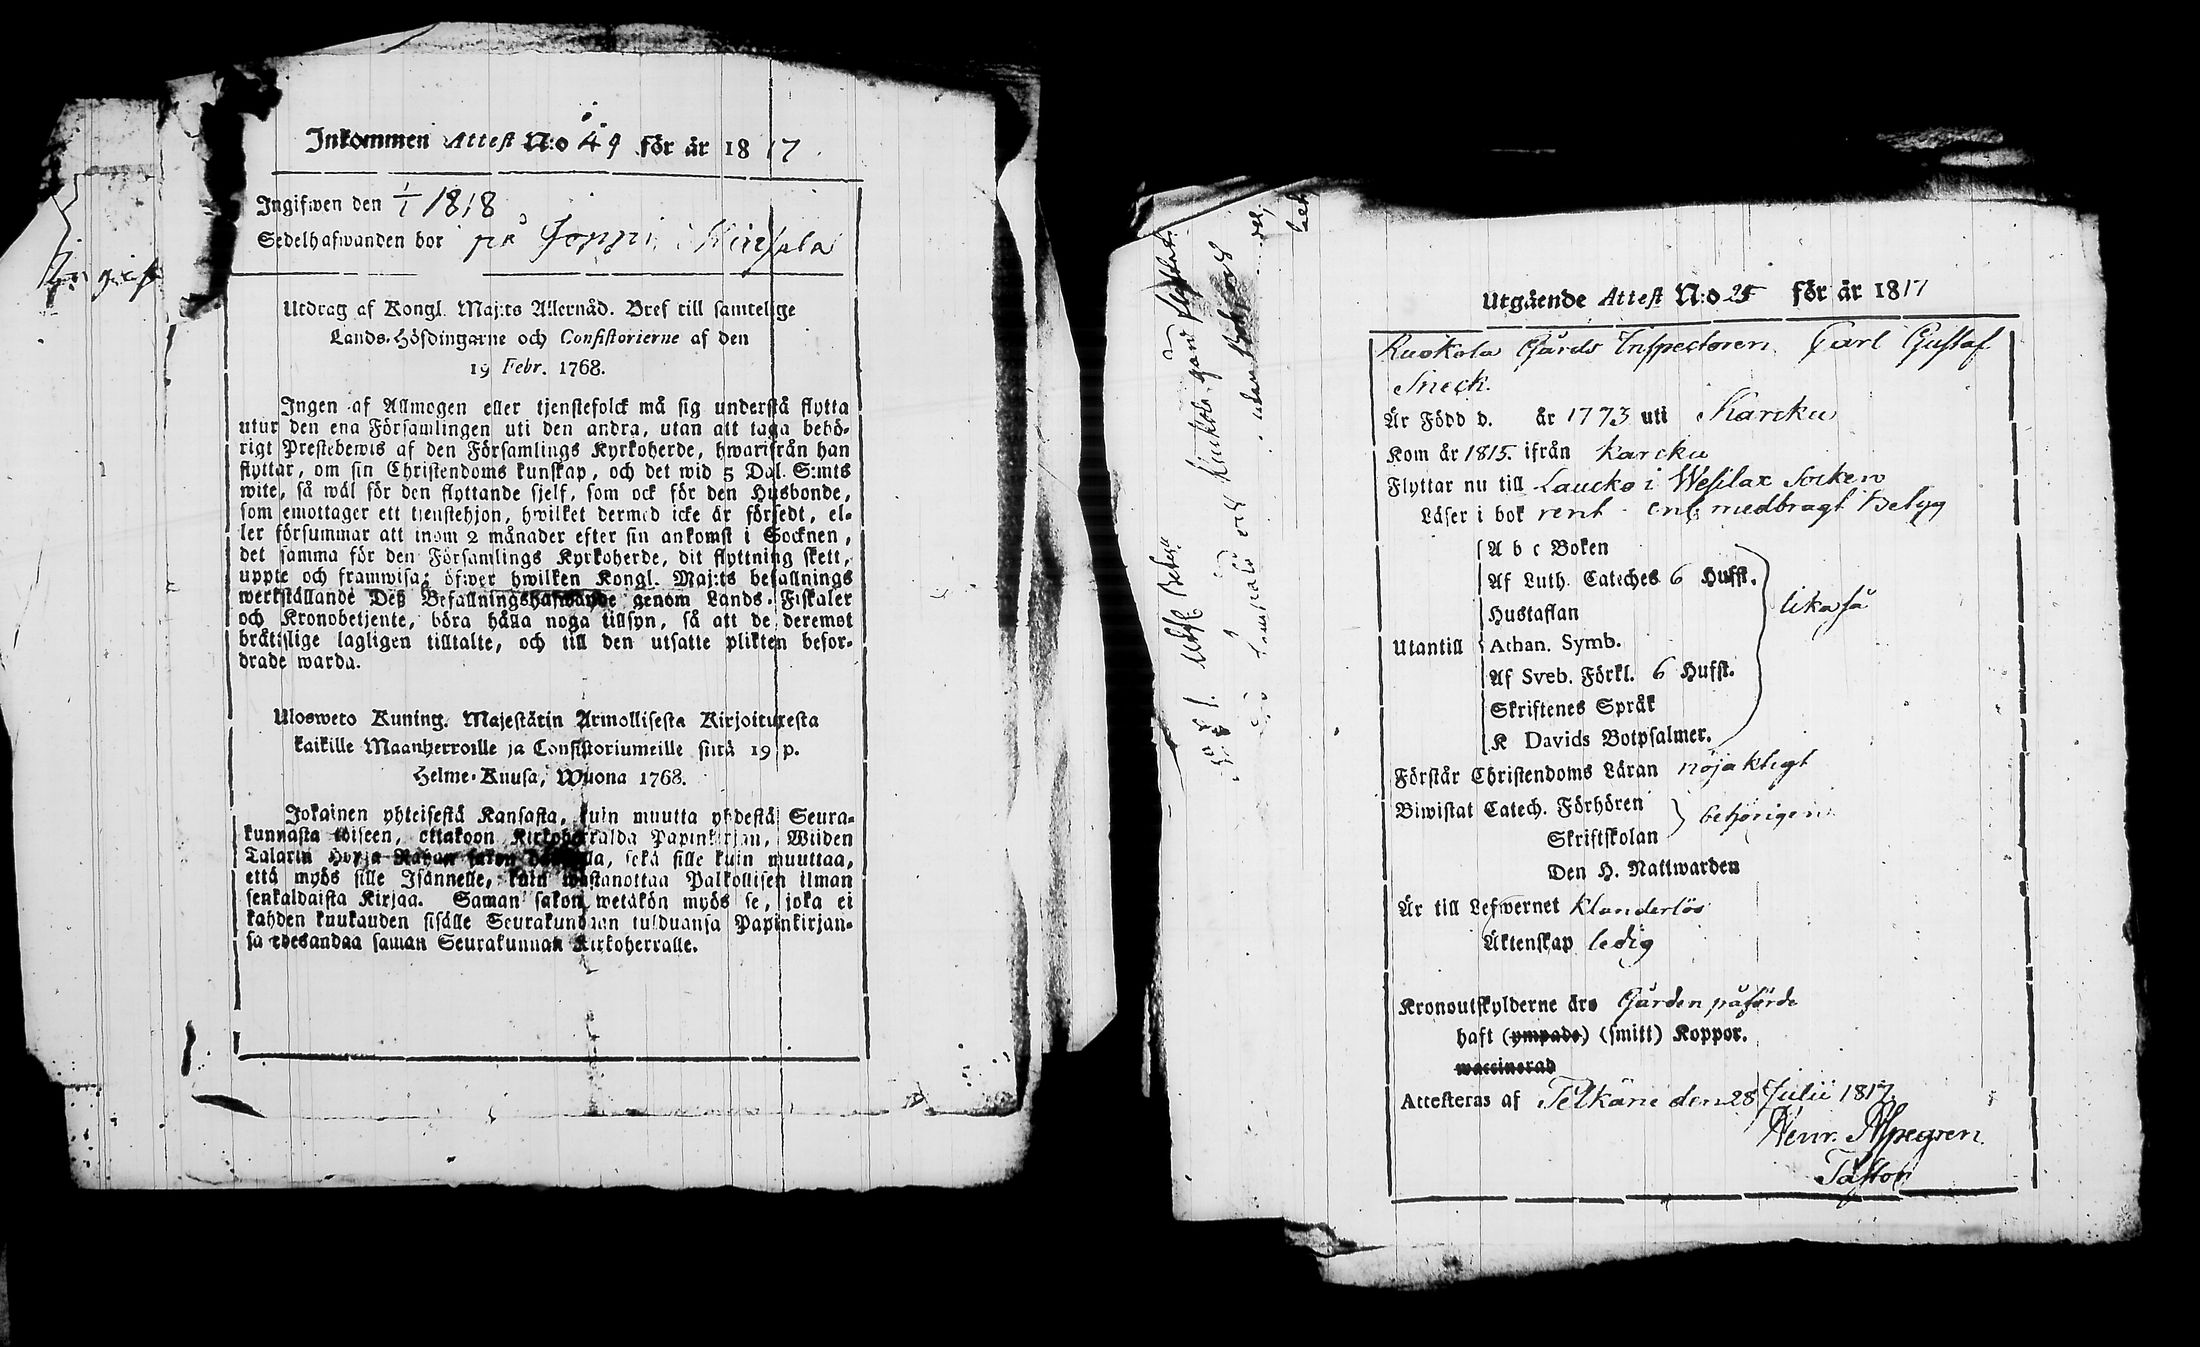 Inkommen Attest N:o 49 för år 1817
Ingifwen den 1/1 1818
Sedelhafwanden bor på Joppi i
Utdrag af Kongl. Maj:ts Allernåd. Bref till samtelige
Lands-Höfdingarne och Consistorierne af den
19 Febr. 1768.
Ingen af Allmogen eller tjenstefolck må sig understå flytta
utur den ena Församlingen uti den andra, utan att taga behö-
rigt Prestebewis af den Församlings Kyrkoherde, hwarifrån han
flyttar, om sin Christendoms kunskap, och det wid 5 Dal. S:mts
wite, så wäl för den flyttande sjelf, som ock för den Husbonde,
som emottager ett tjenstehjon, hwilket dermed icke är försedt, el-
ler försummar att inom 2 månader efter sin ankomst i Socknen,
det samma för den Församlings Kyrkoherde, dit flyttning skett,
uppte och framwisa; öfwer hwilken Kongl. Maj:ts befallnings
werkställande Deß Befallningshafwande genom Lands-Fiskaler
och Kronobetjente, böra hålla noga tillsyn, så att de deremot
brätslige lagligen tilltalte, och till den utsatte plikten befor-
drade warda.
Ulosweto Kuning. Majestätin Armollisesta Kirjoituxesta
kaikille Maanherroille ja Consistoriumeille siitä 19 p.
Helme-Kuusa, Wuona 1768.
Jokainen yhteisestä Kansasta, kuin muutta yhdestä Seura-
kunnasta toiseen, ottakoon Kirkoherralda Papinkirjan, Wiiden
Talarin Hopja Rahan sakon haastolla, sekä sille kuin muuttaa,
että myös sille Isännelle, kuin wastanottaa Palkollisen ilman
senkaldaista Kirjaa. Saman sakon wetäkön myös se, joka ei
kahden kuukauden sisälle Seurakundaan tulduansa Papinkirjan-
sa edesandaa saman Seurakunnan Kirkoherralle.
Utgående Attest N:o 25 för år 1817
Ruokola Gårds Inspectoren Carl Gustaf
Sneck.
Är Född d. år 1773 uti Karcku
Kom år 1815. ifrån Karcku
Flyttar nu till Laucko i Wesilax Socken
Läser i bok rent enl. medbragt Betyg
A b c Boken
Af Luth. Cateches 6 Hufst.
Hustaflan
Utantill Athan. Symb.
Af Sveb. Förkl. 6 Hufst.
Skriftenes Språk
K Davids Botpsalmer.
lika så
Förstår Christendoms Läran nöjaktigt
Biwistat Catech. Förhören
Skriftskolan
behörigen
Den H. Nattwarden
Är till Lefwernet klanderlös
Äktenskap ledig
Kronoutskylderne äro Gården påförde
haft (ympade) (smitt) Koppor.
waccinerad
Attesteras af Pelkäne den 28 Julii 1817.
Henr. Alpegren
Pastor